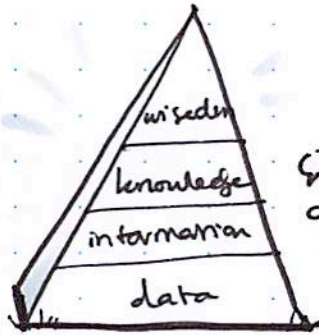 wisedom
knowledge
information
data